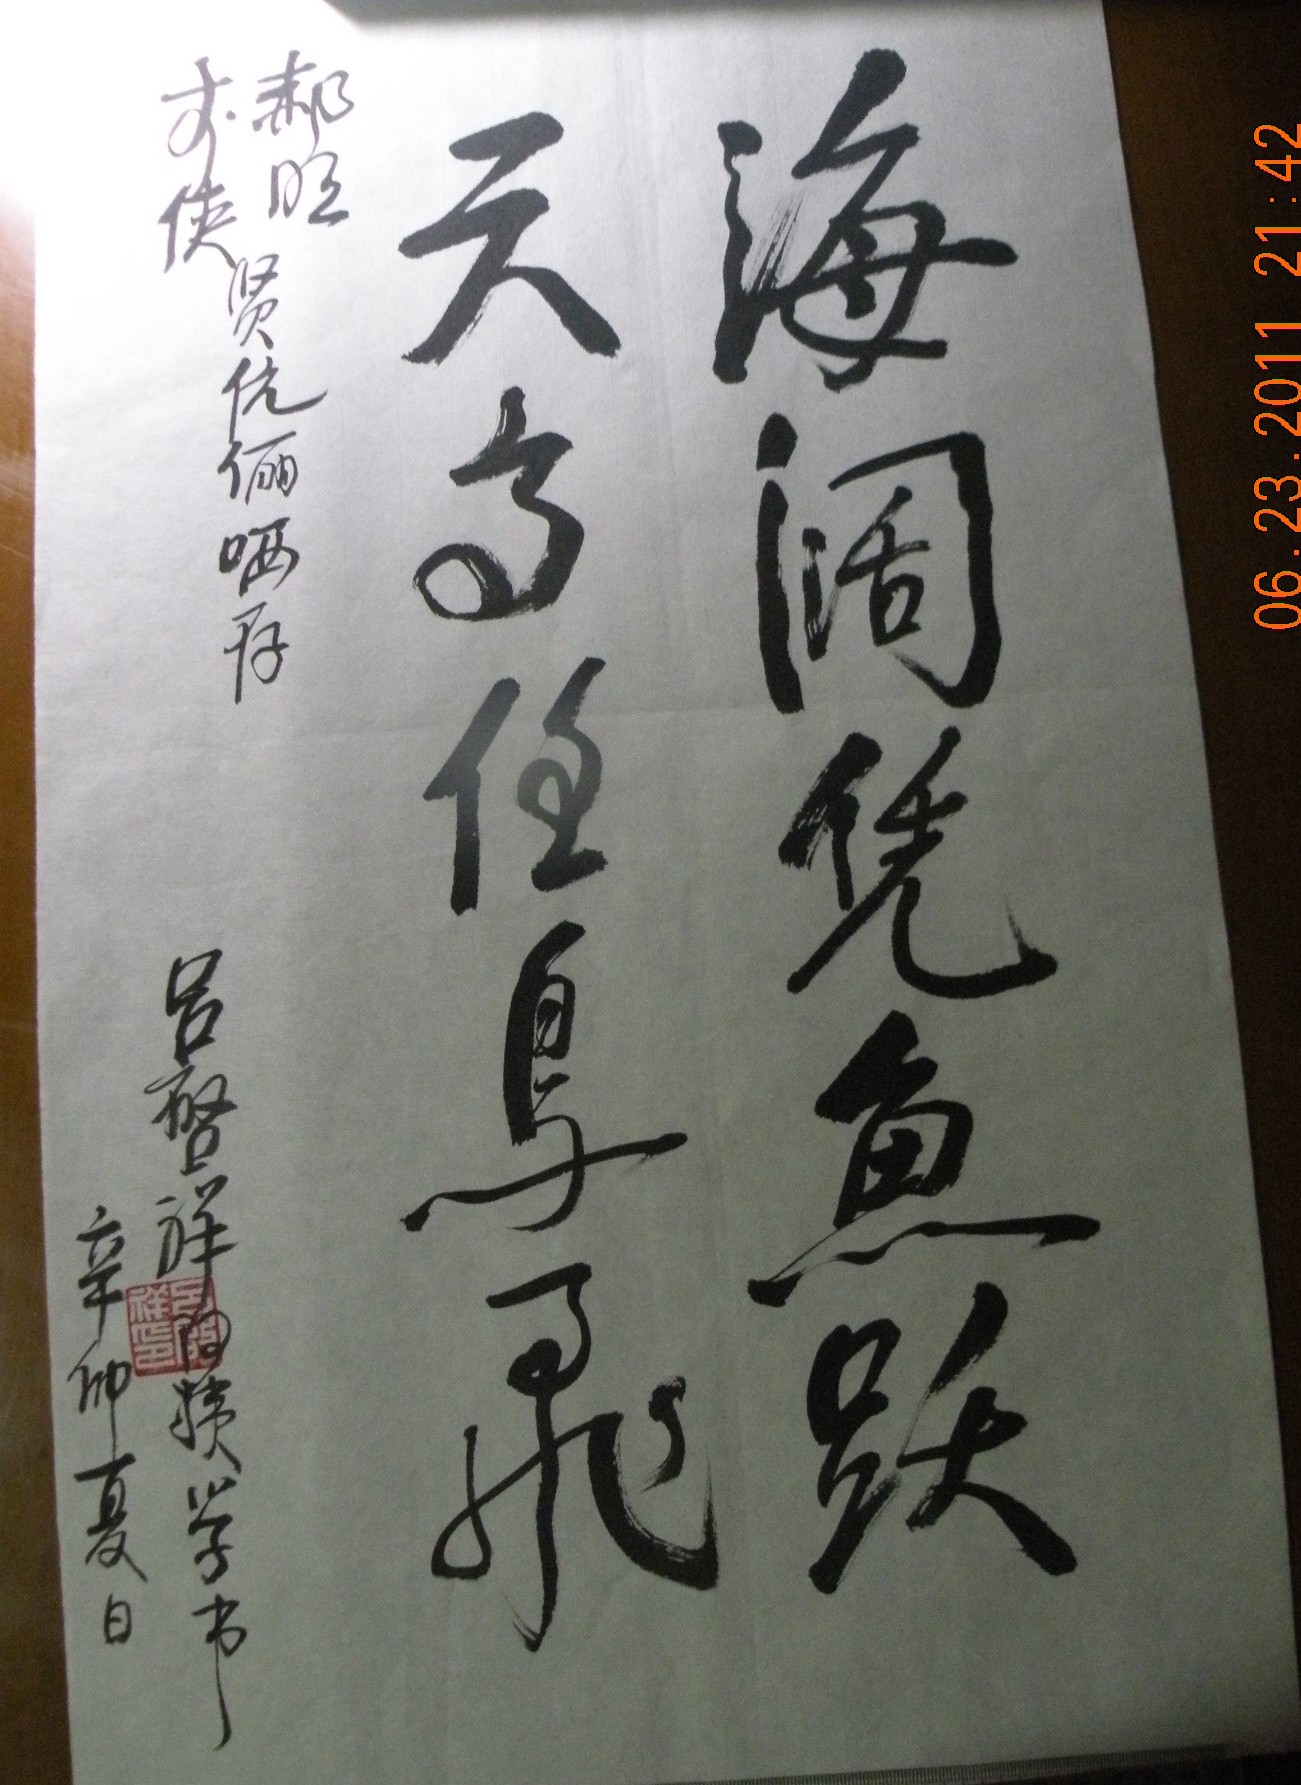 海阔凭鱼跃
天高任鸟飞
郝旺
李侠
贤伉俪哂存
吕啓祥
学书
辛卯夏日
06.23.2011 21:42